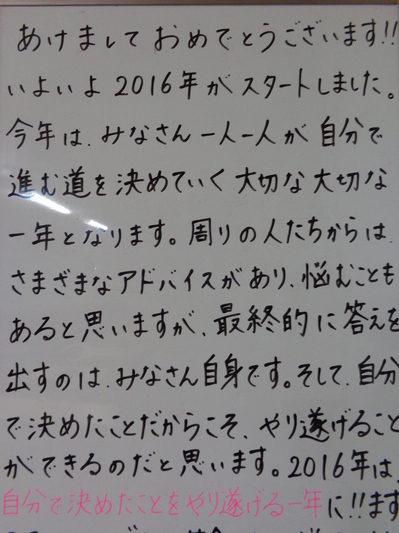 あけましておめでとうございます!!
いよいよ2016年がスタートしました。
今年は、みなさん一人一人が自分で
進む道を決めていく大切な大切な
一年となります。周りの人たちからは
さまざまなアドバイスがあり、悩むことも
あると思いますが、最終的に答えを
出すのは、みなさん自身です。そして、自分
で決めたことだからこそ、やり遂げること
ができるのだと思います。2016年は、
自分で決めたことをやり遂げる一年に!!ます